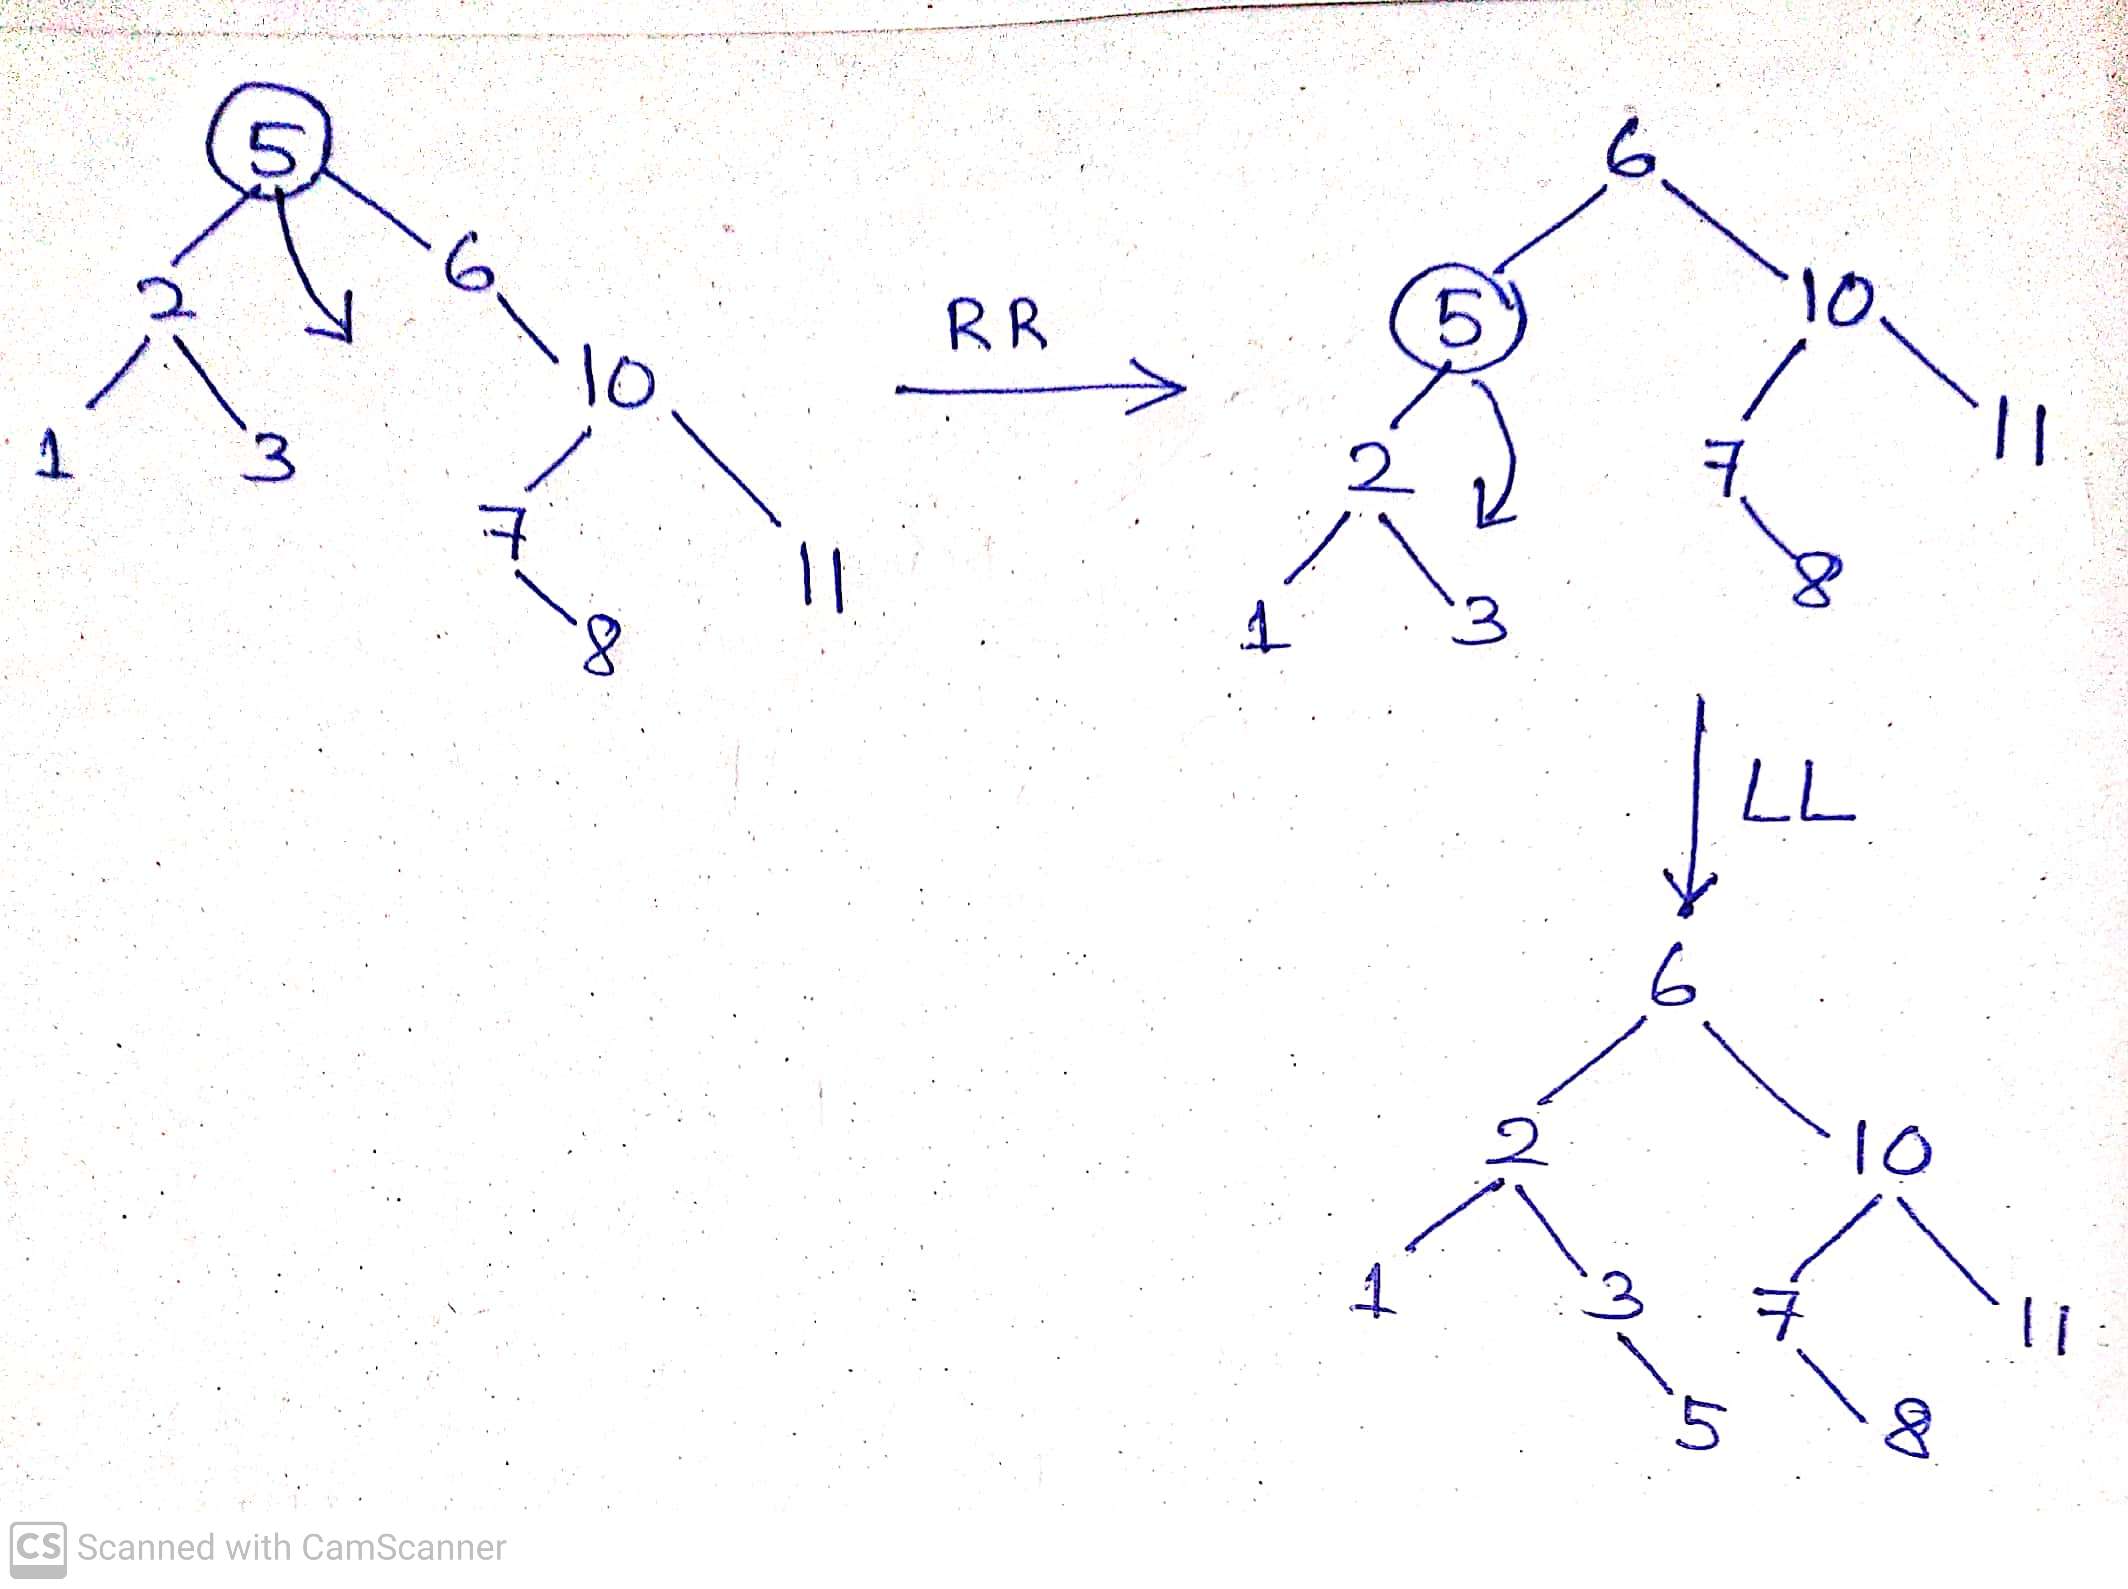 5
6
2
10
1 3
7
11
8
RR
6
5 10
2 7 11
8
1 3
LL
6
2 10
1 3 7 11
5 8
CS Scanned with CamScanner